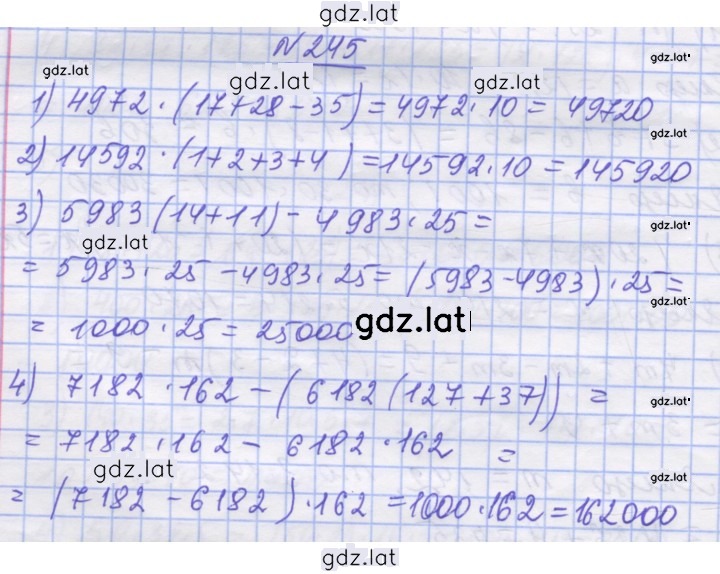 gdz.lat
№ 245
gdz.lat
gdz.lat gdz.lat gdz.lat
1) 4972 · (17+28-35) = 4972 · 10 = 49720
gdz.lat
2) 14592 · (1+2+3+4) = 14592 · 10 = 145920
3) 5983 (14+11) - 4983 · 25 =
gdz.lat gdz.lat
= 5983 · 25 - 4983 · 25 = (5983 - 4983) · 25 =
gdz.lat
= 1000 · 25 = 25000
gdz.lat
4) 7182 · 162 - (6182 (127 + 37)) =
gdz.lat
= 7182 · 162 - 6182 · 162 =
gdz.lat gdz.lat
= (7182 - 6182) · 162 = 1000 · 162 = 162000
gdz.lat